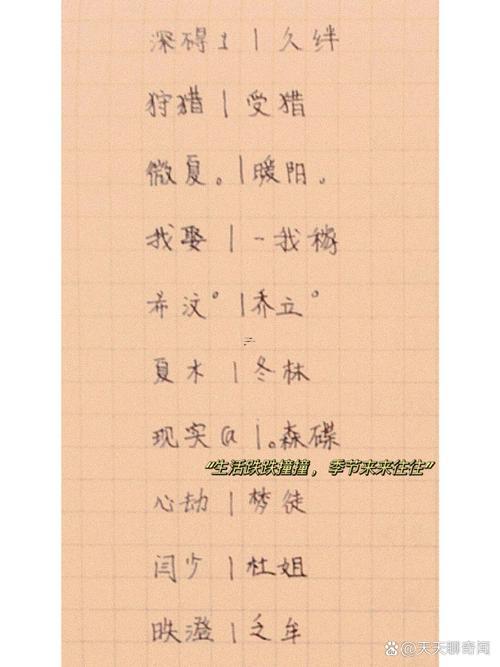 深碍 | 久绊
狩猎 | 受猎
微夏。| 暖阳。
我娶 | -我稼
希汶° | 乔立°
夏木 | 冬林
现实@ | 。森碟
"生活跌跌撞撞，季节来来往往"
心劫 | 梦徒
闫少 | 杜姐
昳澄 | 乏牟
天天聊奇闻